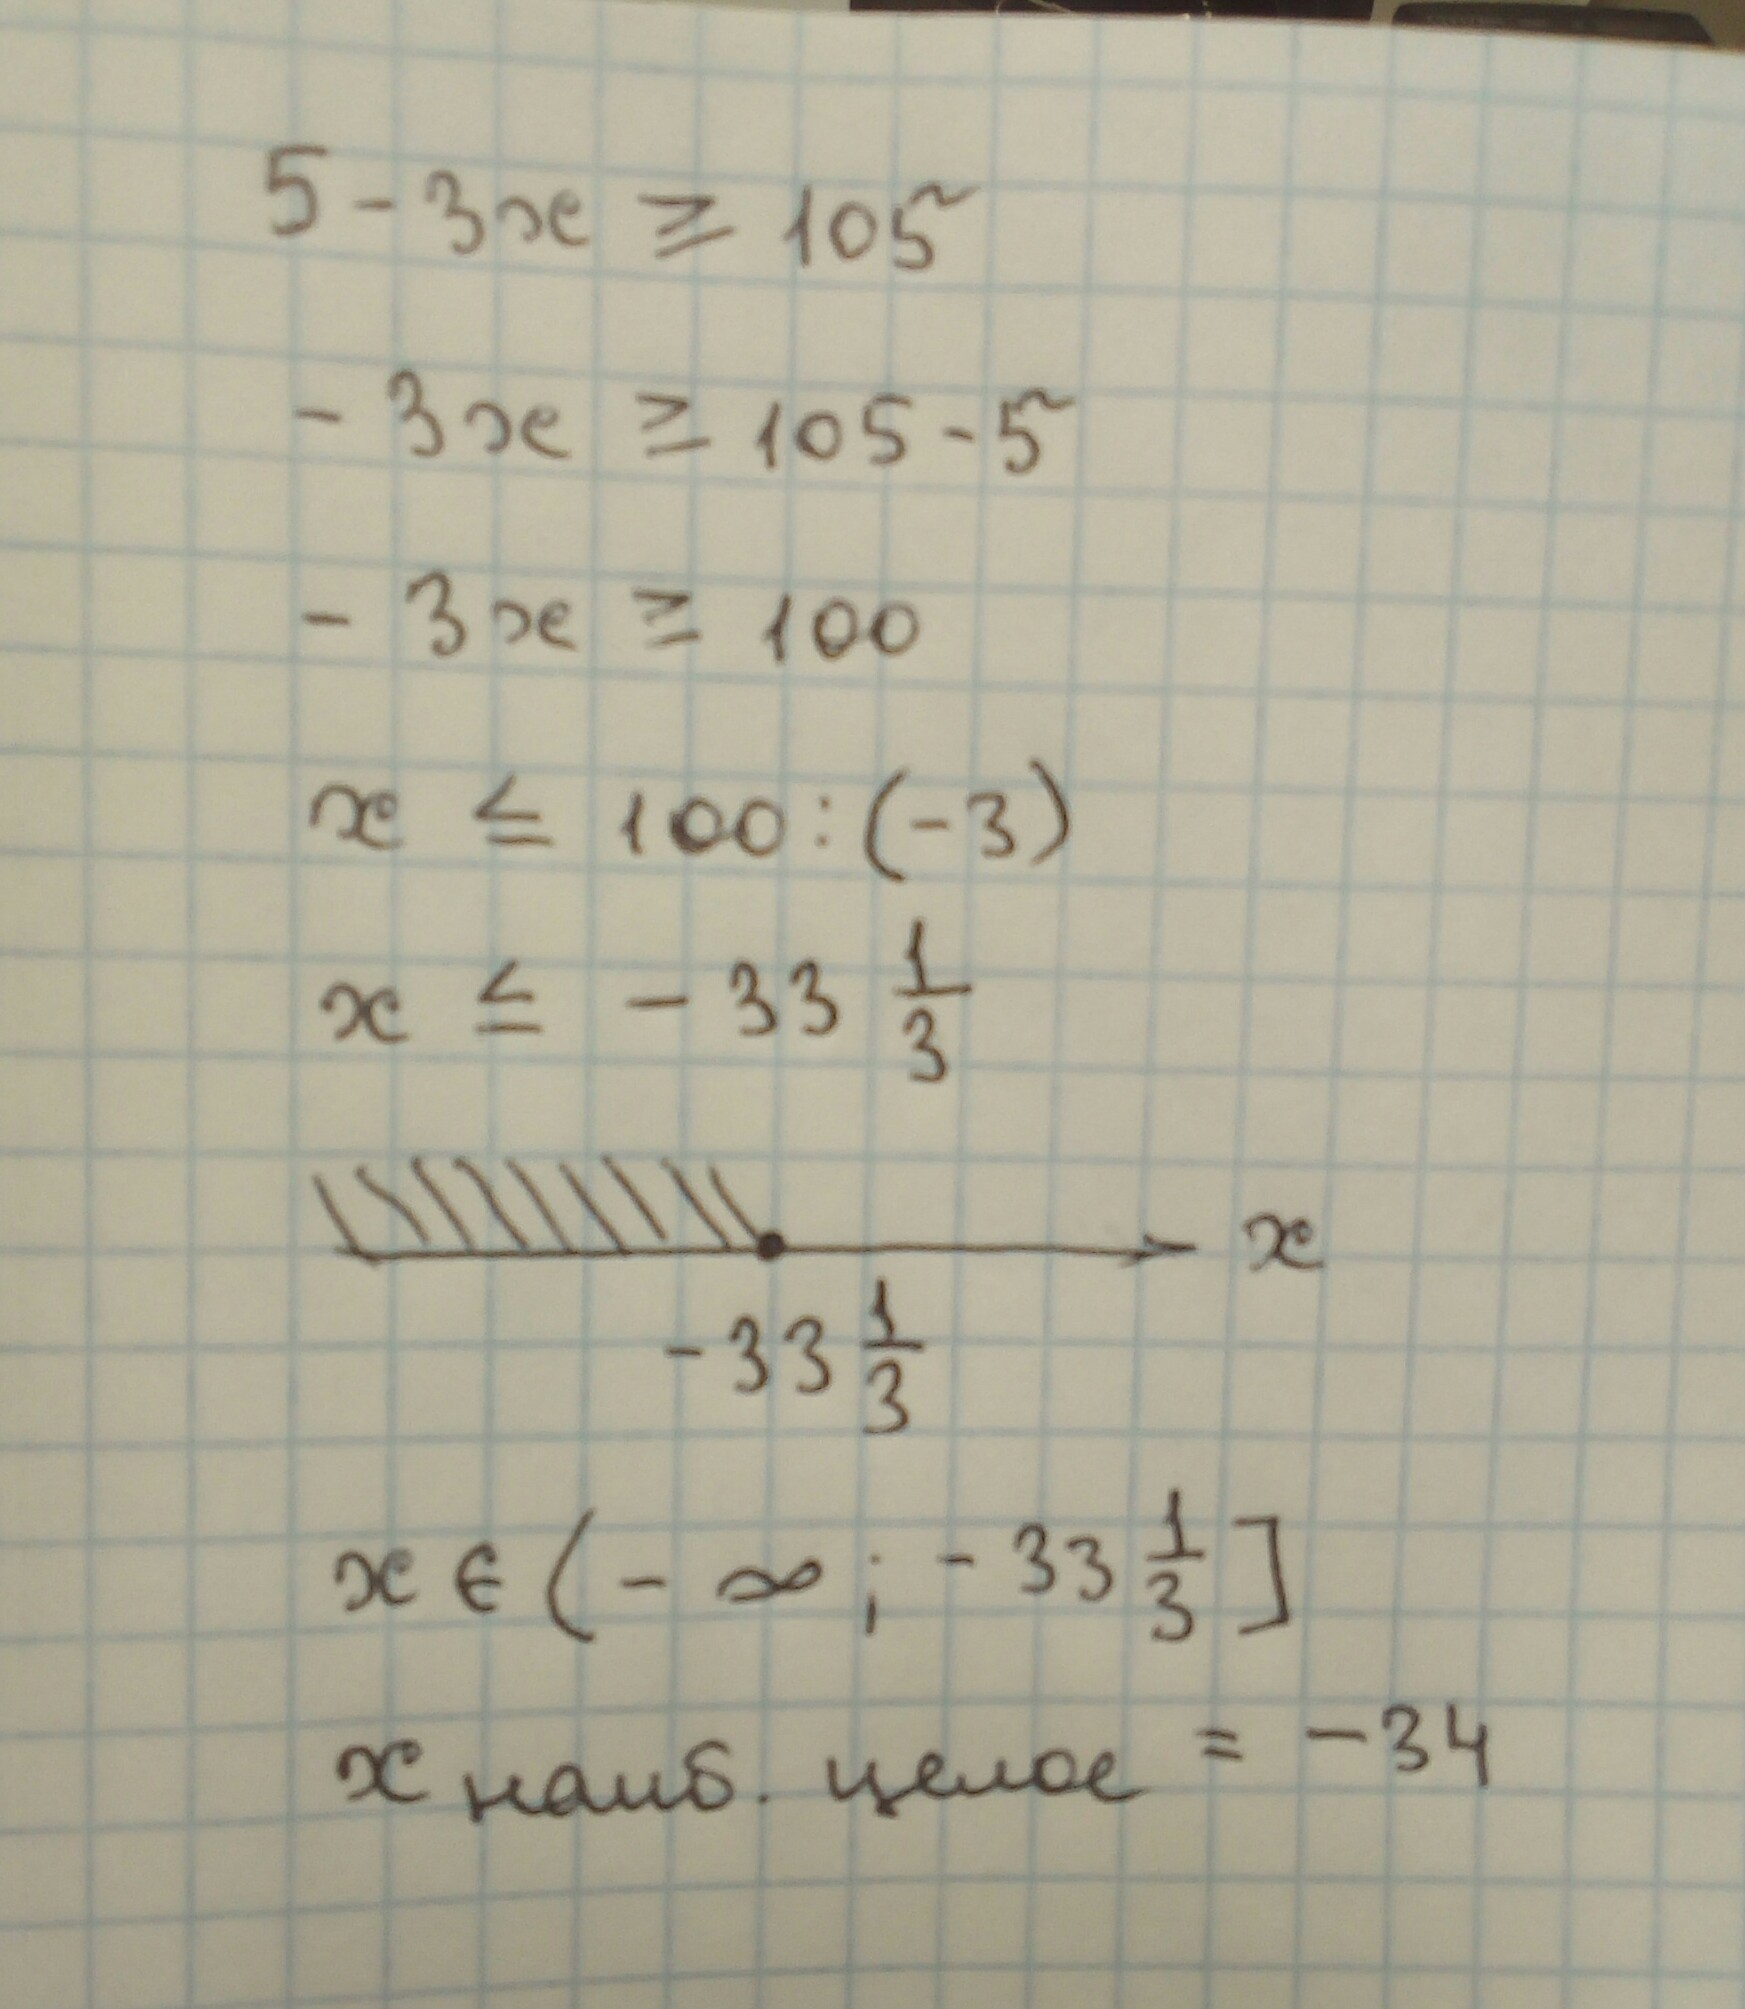 5 - 3x ≥ 105
- 3x ≥ 105 - 5
- 3x ≥ 100
x ≤ 100 : (-3)
x ≤ - 33 1/3
x
-33 1/3
x ∈ (- ∞ ; - 33 1/3]
x наиб. целое = -34